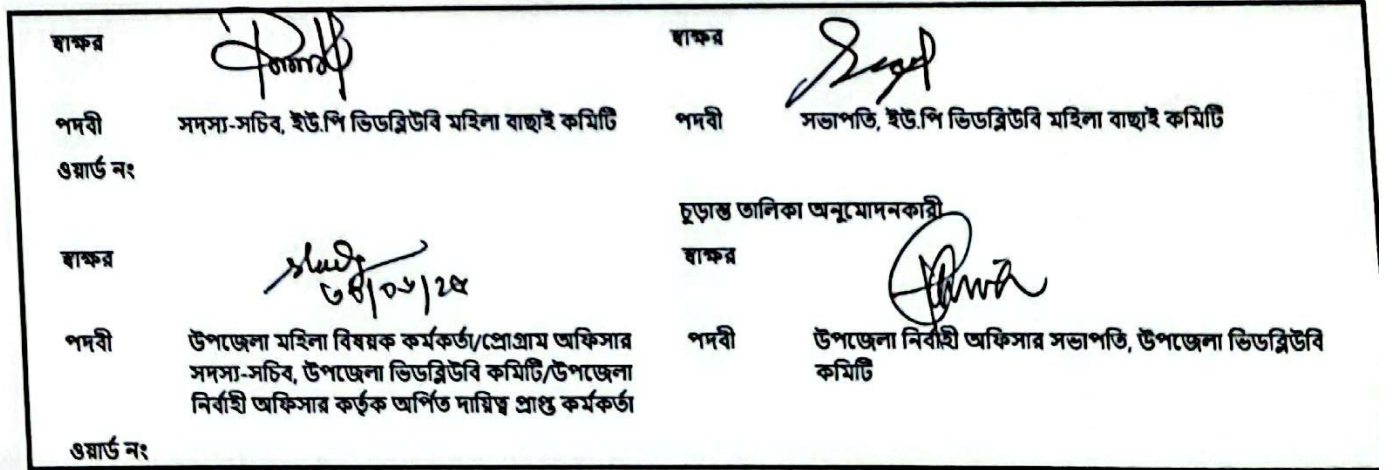 স্বাক্ষর
স্বাক্ষর
পদবী সদস্য-সচিব, ইউ.পি ভিডব্লিউবি মহিলা বাছাই কমিটি
পদবী সভাপতি, ইউ.পি ভিডব্লিউবি মহিলা বাছাই কমিটি
ওয়ার্ড নং
চূড়ান্ত তালিকা অনুমোদনকারী
স্বাক্ষর
স্বাক্ষর
পদবী উপজেলা মহিলা বিষয়ক কর্মকর্তা/প্রোগ্রাম অফিসার
সদস্য-সচিব, উপজেলা ভিডব্লিউবি কমিটি/উপজেলা
নির্বাহী অফিসার কর্তৃক অর্পিত দায়িত্ব প্রাপ্ত কর্মকর্তা
পদবী উপজেলা নির্বাহী অফিসার সভাপতি, উপজেলা ভিডব্লিউবি
কমিটি
ওয়ার্ড নং